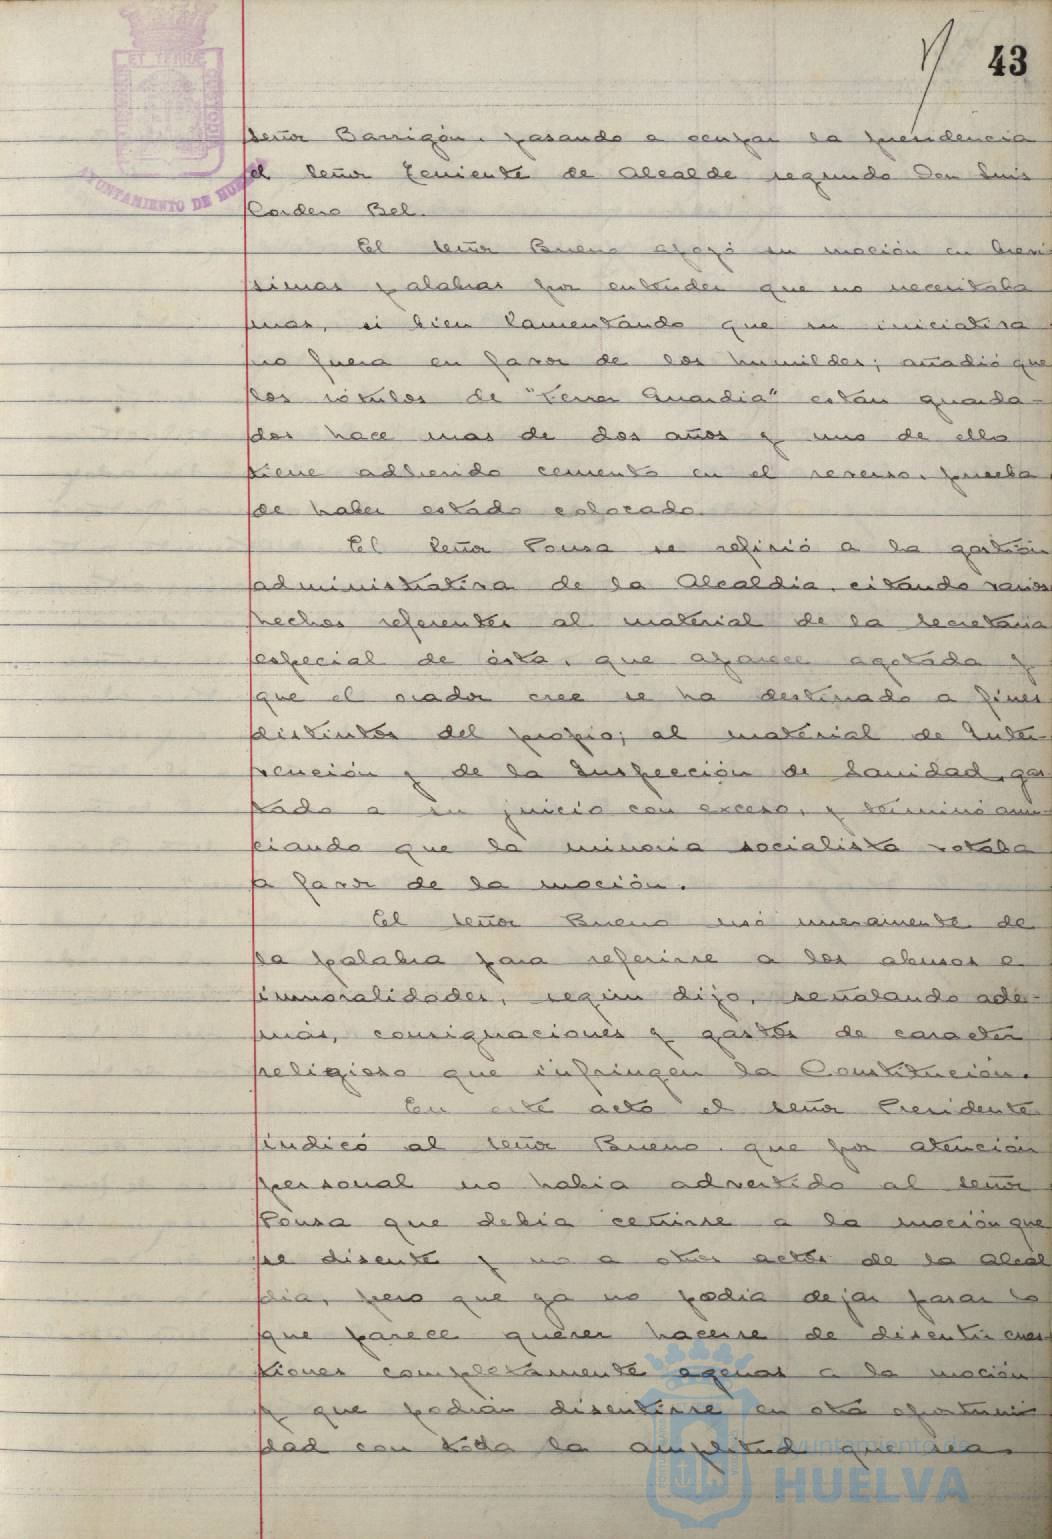 43
señor Barrigón, pasando a ocupar la presidencia
el señor Teniente de Alcalde segundo Don Luis
Cordero Bel.
El señor Bueno apoyó su moción en breví
simas palabras por entender que no necesitaba
mas, si bien lamentando que su iniciativa
no fuera en favor de los humildes; añadió que
los rótulos de "Ferrer Guardia" están guarda-
dos hace mas de dos años y uno de ellos
tiene adherido cemento en el reverso, prueba
de haber estado colocado.
El señor Ponsa se refirió a la gestión
administrativa de la Alcaldia, citando varios
hechos referentes al material de la Secretaria
especial de ésta, que aparece agotada y
que el orador cree se ha destinado a fines
distintos del propio; al material de Inter
vención y de la Inspección de Sanidad, gas
tado a su juicio con exceso, y terminó anun
ciando que la minoria socialista votaba
a favor de la moción.
El señor Bueno usó nuevamente de
la palabra para referirse a los abusos e
inmoralidades, según dijo, señalando ade-
más, consignaciones y gastos de caracter
religioso que infringen la Constitución.
En este acto el señor Presidente
indicó al señor Bueno, que por atención
personal no habia advertido al señor
Ponsa que debia ceñirse a la moción que
se discute y no a otros actos de la Alcal
dia, pero que ya no podia dejar pasar lo
que parece querer hacerse de discutir cues
tiones completamente agenas a la moción
y que podrán discutirse en otra oportuni
dad con toda la amplitud que sea
ET TERRÆ
AYUNTAMIENTO DE HUELVA
Ayuntamiento de
HUELVA